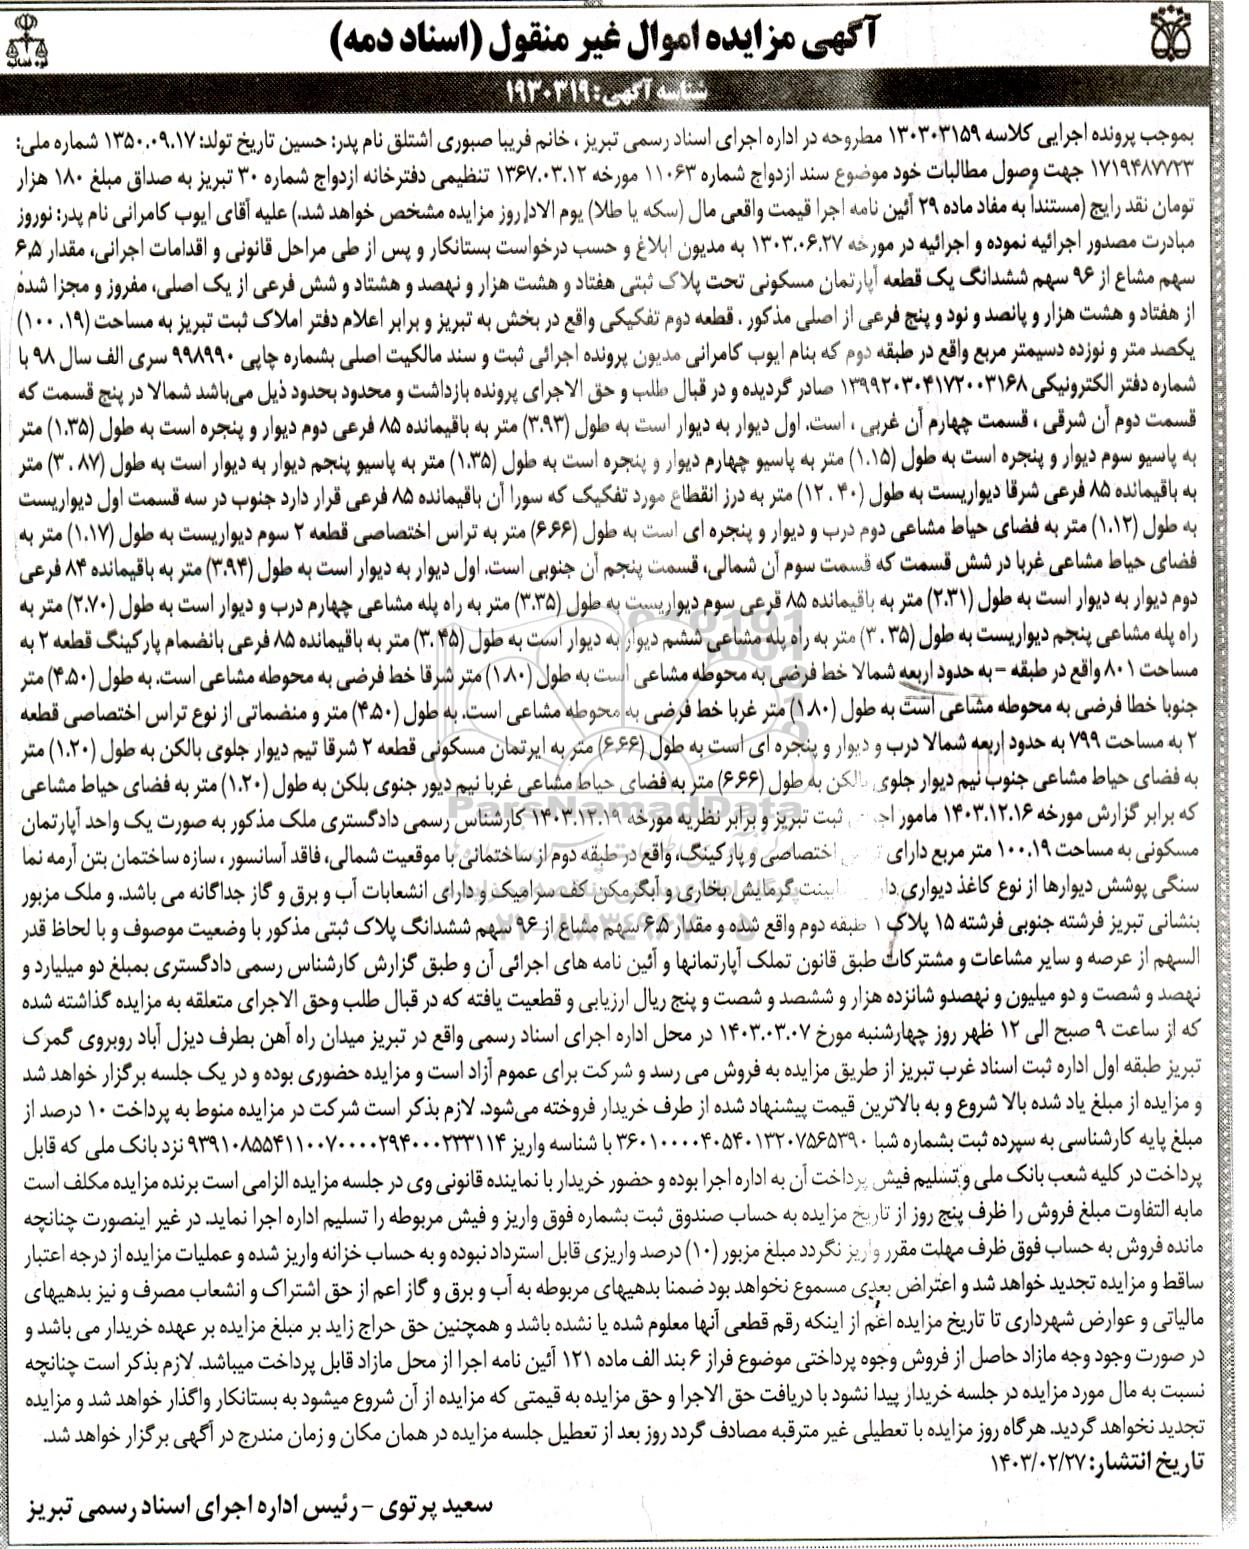 آگهی مزایده اموال غیر منقول (اسناد ذمه)
قوه قضائیه
شناسه آگهی: ۱۹۳۰۳۱۹
بموجب پرونده اجرایی کلاسه ۱۳۰۳۰۳۱۵۹ مطروحه در اداره اجرای اسناد رسمی تبریز ، خانم فریبا صبوری اشتلق نام پدر: حسین تاریخ تولد: ۱۳۵۰.۰۹.۱۷ شماره ملی:
۱۷۱۹۴۸۷۷۲۳ جهت وصول مطالبات خود موضوع سند ازدواج شماره ۱۱۰۶۳ مورخه ۱۳۶۷.۰۳.۱۲ تنظیمی دفترخانه ازدواج شماره ۳۰ تبریز به صداق مبلغ ۱۸۰ هزار
تومان نقد رایج (مستندا به مفاد ماده ۲۹ آئین نامه اجرا قیمت واقعی مال (سکه یا طلا) یوم الادا روز مزایده مشخص خواهد شد.) علیه آقای ایوب کامرانی نام پدر: نوروز
مبادرت مصدور اجرائیه نموده و اجرائیه در مورخه ۱۳۰۳.۰۶.۲۷ به مدیون ابلاغ و حسب درخواست بستانکار و پس از طی مراحل قانونی و اقدامات اجرانی، مقدار ۶,۵
سهم مشاع از ۹۶ سهم ششدانگ یک قطعه آپارتمان مسکونی تحت پلاک ثبتی هفتاد و هشت هزار و نهصد و هشتاد و شش فرعی از یک اصلی، مفروز و مجزا شده
از هفتاد و هشت هزار و پانصد و نود و پنج فرعی از اصلی مذکور . قطعه دوم تفکیکی واقع در بخش به تبریز و برابر اعلام دفتر املاک ثبت تبریز به مساحت (۱۰۰.۱۹)
یکصد متر و نوزده دسیمتر مربع واقع در طبقه دوم که بنام ایوب کامرانی مدیون پرونده اجرائی ثبت و سند مالکیت اصلی بشماره چاپی ۹۹۸۹۹۰ سری الف سال ۹۸ با
شماره دفتر الکترونیکی ۱۳۹۹۲۰۳۰۴۱۷۲۰۰۳۱۶۸ صادر گردیده و در قبال طلب و حق الاجرای پرونده بازداشت و محدود بحدود ذیل می‌باشد شمالا در پنج قسمت که
قسمت دوم آن شرقی ، قسمت چهارم آن غربی ، است. اول دیوار به دیوار است به طول (۳.۹۳) متر به باقیمانده ۸۵ فرعی دوم دیوار و پنجره است به طول (۱.۳۵) متر
به پاسیو سوم دیوار و پنجره است به طول (۱.۱۵) متر به پاسیو چهارم دیوار و پنجره است به طول (۱.۳۵) متر به پاسیو پنجم دیوار به دیوار است به طول (۳.۸۷) متر
به باقیمانده ۸۵ فرعی شرقا دیواریست به طول (۱۲.۴۰) متر به درز انقطاع مورد تفکیک که سورا آن باقیمانده ۸۵ فرعی قرار دارد جنوب در سه قسمت اول دیواریست
به طول (۱.۱۲) متر به فضای حیاط مشاعی دوم درب و دیوار و پنجره ای است به طول (۶.۶۶) متر به تراس اختصاصی قطعه ۲ سوم دیواریست به طول (۱.۱۷) متر به
فضای حیاط مشاعی غربا در شش قسمت که قسمت سوم آن شمالی، قسمت پنجم آن جنوبی است. اول دیوار به دیوار است به طول (۳.۹۴) متر به باقیمانده ۸۴ فرعی
دوم دیوار به دیوار است به طول (۲.۳۱) متر به باقیمانده ۸۵ فرعی سوم دیواریست به طول (۳.۳۵) متر به راه پله مشاعی چهارم درب و دیوار است به طول (۲.۷۰) متر به
راه پله مشاعی پنجم دیواریست به طول (۳.۳۵) متر به راه پله مشاعی ششم دیوار به دیوار است به طول (۳.۴۵) متر به باقیمانده ۸۵ فرعی بانضمام پارکینگ قطعه ۲ به
مساحت ۸۰۱ واقع در طبقه – به حدود اربعه شمالا خط فرضی به محوطه مشاعی است به طول (۱.۸۰) متر شرقا خط فرضی به محوطه مشاعی است. به طول (۴.۵۰) متر
جنوبا خطا فرضی به محوطه مشاعی است به طول (۱.۸۰) متر غربا خط فرضی به محوطه مشاعی است. به طول (۴.۵۰) متر و منضماتی از نوع تراس اختصاصی قطعه
۲ به مساحت ۷۹۹ به حدود اربعه شمالا درب و دیوار و پنجره ای است به طول (۶.۶۶) متر به ایرتمان مسکونی قطعه ۲ شرقا تیم دیوار جلوی بالکن به طول (۱.۲۰) متر
به فضای حیاط مشاعی جنوب نیم دیوار جلوی بالکن به طول (۶.۶۶) متر به فضای حیاط مشاعی غربا نیم دیور جنوی بلکن به طول (۱.۲۰) متر به فضای حیاط مشاعی
که برابر گزارش مورخه ۱۴۰۳.۱۲.۱۶ مامور ثبت تبریز و برابر نظریه مورخه ۱۴۰۳.۱۲.۱۹ کارشناس رسمی دادگستری ملک مذکور به صورت یک واحد آپارتمان
مسکونی به مساحت ۱۰۰.۱۹ متر مربع دارای اختصاصی و پارکینگ، واقع در طبقه دوم از ساختمانی با موقعیت شمالی، فاقد آسانسور ، سازه ساختمان بتن آرمه نما
سنگی پوشش دیوارها از نوع کاغذ دیواری گرمایش بخاری و آبگرمکن کف سرامیک و دارای انشعابات آب و برق و گاز جداگانه می باشد. و ملک مزبور
بنشانی تبریز فرشته جنوبی فرشته ۱۵ پلاک ۱ طبقه دوم واقع شده و مقدار ۶.۵ سهم مشاع از ۹۶ سهم ششدانگ پلاک ثبتی مذکور با وضعیت موصوف و با لحاظ قدر
السهم از عرصه و سایر مشاعات و مشترکات طبق قانون تملک آپارتمانها و آئین نامه های اجرائی آن و طبق گزارش کارشناس رسمی دادگستری بمبلغ دو میلیارد و
نهصد و شصت و دو میلیون و نهصدو شانزده هزار و ششصد و شصت و پنج ریال ارزیابی و قطعیت یافته که در قبال طلب وحق الاجرای متعلقه به مزایده گذاشته شده
که از ساعت ۹ صبح الی ۱۲ ظهر روز چهارشنبه مورخ ۱۴۰۳.۰۳.۰۷ در محل اداره اجرای اسناد رسمی واقع در تبریز میدان راه آهن بطرف دیزل آباد روبروی گمرک
تبریز طبقه اول اداره ثبت اسناد غرب تبریز از طریق مزایده به فروش می رسد و شرکت برای عموم آزاد است و مزایده حضوری بوده و در یک جلسه برگزار خواهد شد
و مزایده از مبلغ یاد شده بالا شروع و به بالاترین قیمت پیشنهاد شده از طرف خریدار فروخته می‌شود. لازم بذکر است شرکت در مزایده منوط به پرداخت ۱۰ درصد از
مبلغ پایه کارشناسی به سپرده ثبت بشماره شبا ۳۶۰۱۰۰۰۰۴۰۵۴۰۱۳۲۰۷۵۶۵۳۹۰ با شناسه واریز ۹۳۹۱۰۸۵۵۴۱۱۰۰۷۰۰۰۰۲۹۴۰۰۰۲۳۳۱۱۴ نزد بانک ملی که قابل
پرداخت در کلیه شعب بانک ملی و تسلیم فیش پرداخت آن به اداره اجرا بوده و حضور خریدار با نماینده قانونی وی در جلسه مزایده الزامی است برنده مزایده مکلف است
مابه التفاوت مبلغ فروش را ظرف پنج روز از تاریخ مزایده به حساب صندوق ثبت بشماره فوق واریز و فیش مربوطه را تسلیم اداره اجرا نماید. در غیر اینصورت چنانچه
مانده فروش به حساب فوق ظرف مهلت مقرر واریز نگردد مبلغ مزبور (۱۰) درصد واریزی قابل استرداد نبوده و به حساب خزانه واریز شده و عملیات مزایده از درجه اعتبار
ساقط و مزایده تجدید خواهد شد و اعتراض بعدی مسموع نخواهد بود ضمنا بدهیهای مربوطه به آب و برق و گاز اعم از حق اشتراک و انشعاب مصرف و نیز بدهیهای
مالیاتی و عوارض شهرداری تا تاریخ مزایده اعم از اینکه رقم قطعی آنها معلوم شده یا نشده باشد و همچنین حق حراج زاید بر مبلغ مزایده بر عهده خریدار می باشد و
در صورت وجود وجه مازاد حاصل از فروش وجوه پرداختی موضوع فراز ۶ بند الف ماده ۱۲۱ آئین نامه اجرا از محل مازاد قابل پرداخت میباشد. لازم بذکر است چنانچه
نسبت به مال مورد مزایده در جلسه خریدار پیدا نشود با دریافت حق الاجرا و حق مزایده به قیمتی که مزایده از آن شروع میشود به بستانکار واگذار خواهد شد و مزایده
تجدید نخواهد گردید. هرگاه روز مزایده با تعطیلی غیر مترقبه مصادف گردد روز بعد از تعطیل جلسه مزایده در همان مکان و زمان مندرج در آگهی برگزار خواهد شد.
تاریخ انتشار: ۱۴۰۳/۰۲/۲۷
سعید پرتوی – رئیس اداره اجرای اسناد رسمی تبریز
ParsNamadData